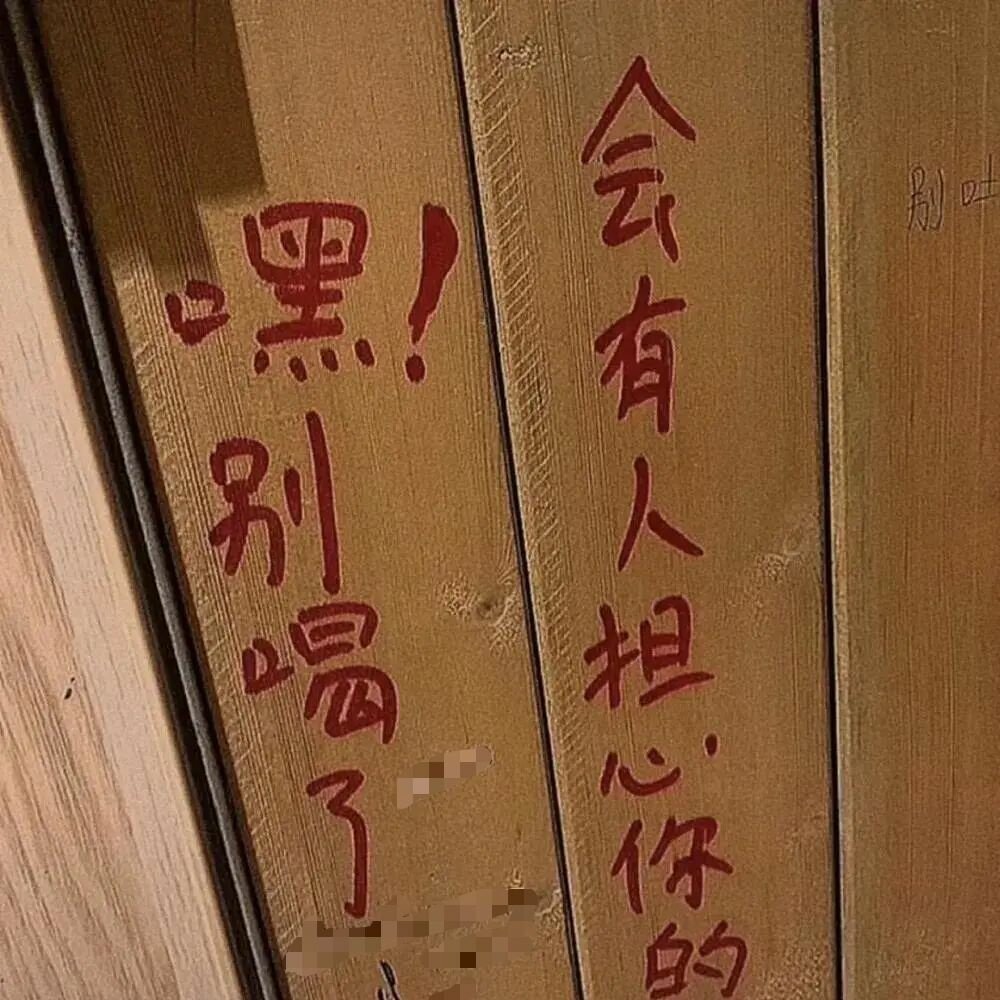 嘿！
别喝了
会有人担心你的
别吐